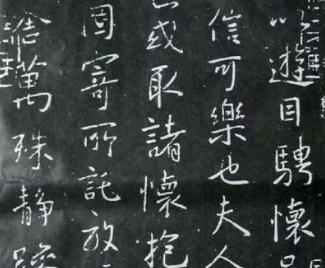 以遊目騁懷
信可樂也夫人
或取諸懷抱
因寄所託放
萬殊靜躁